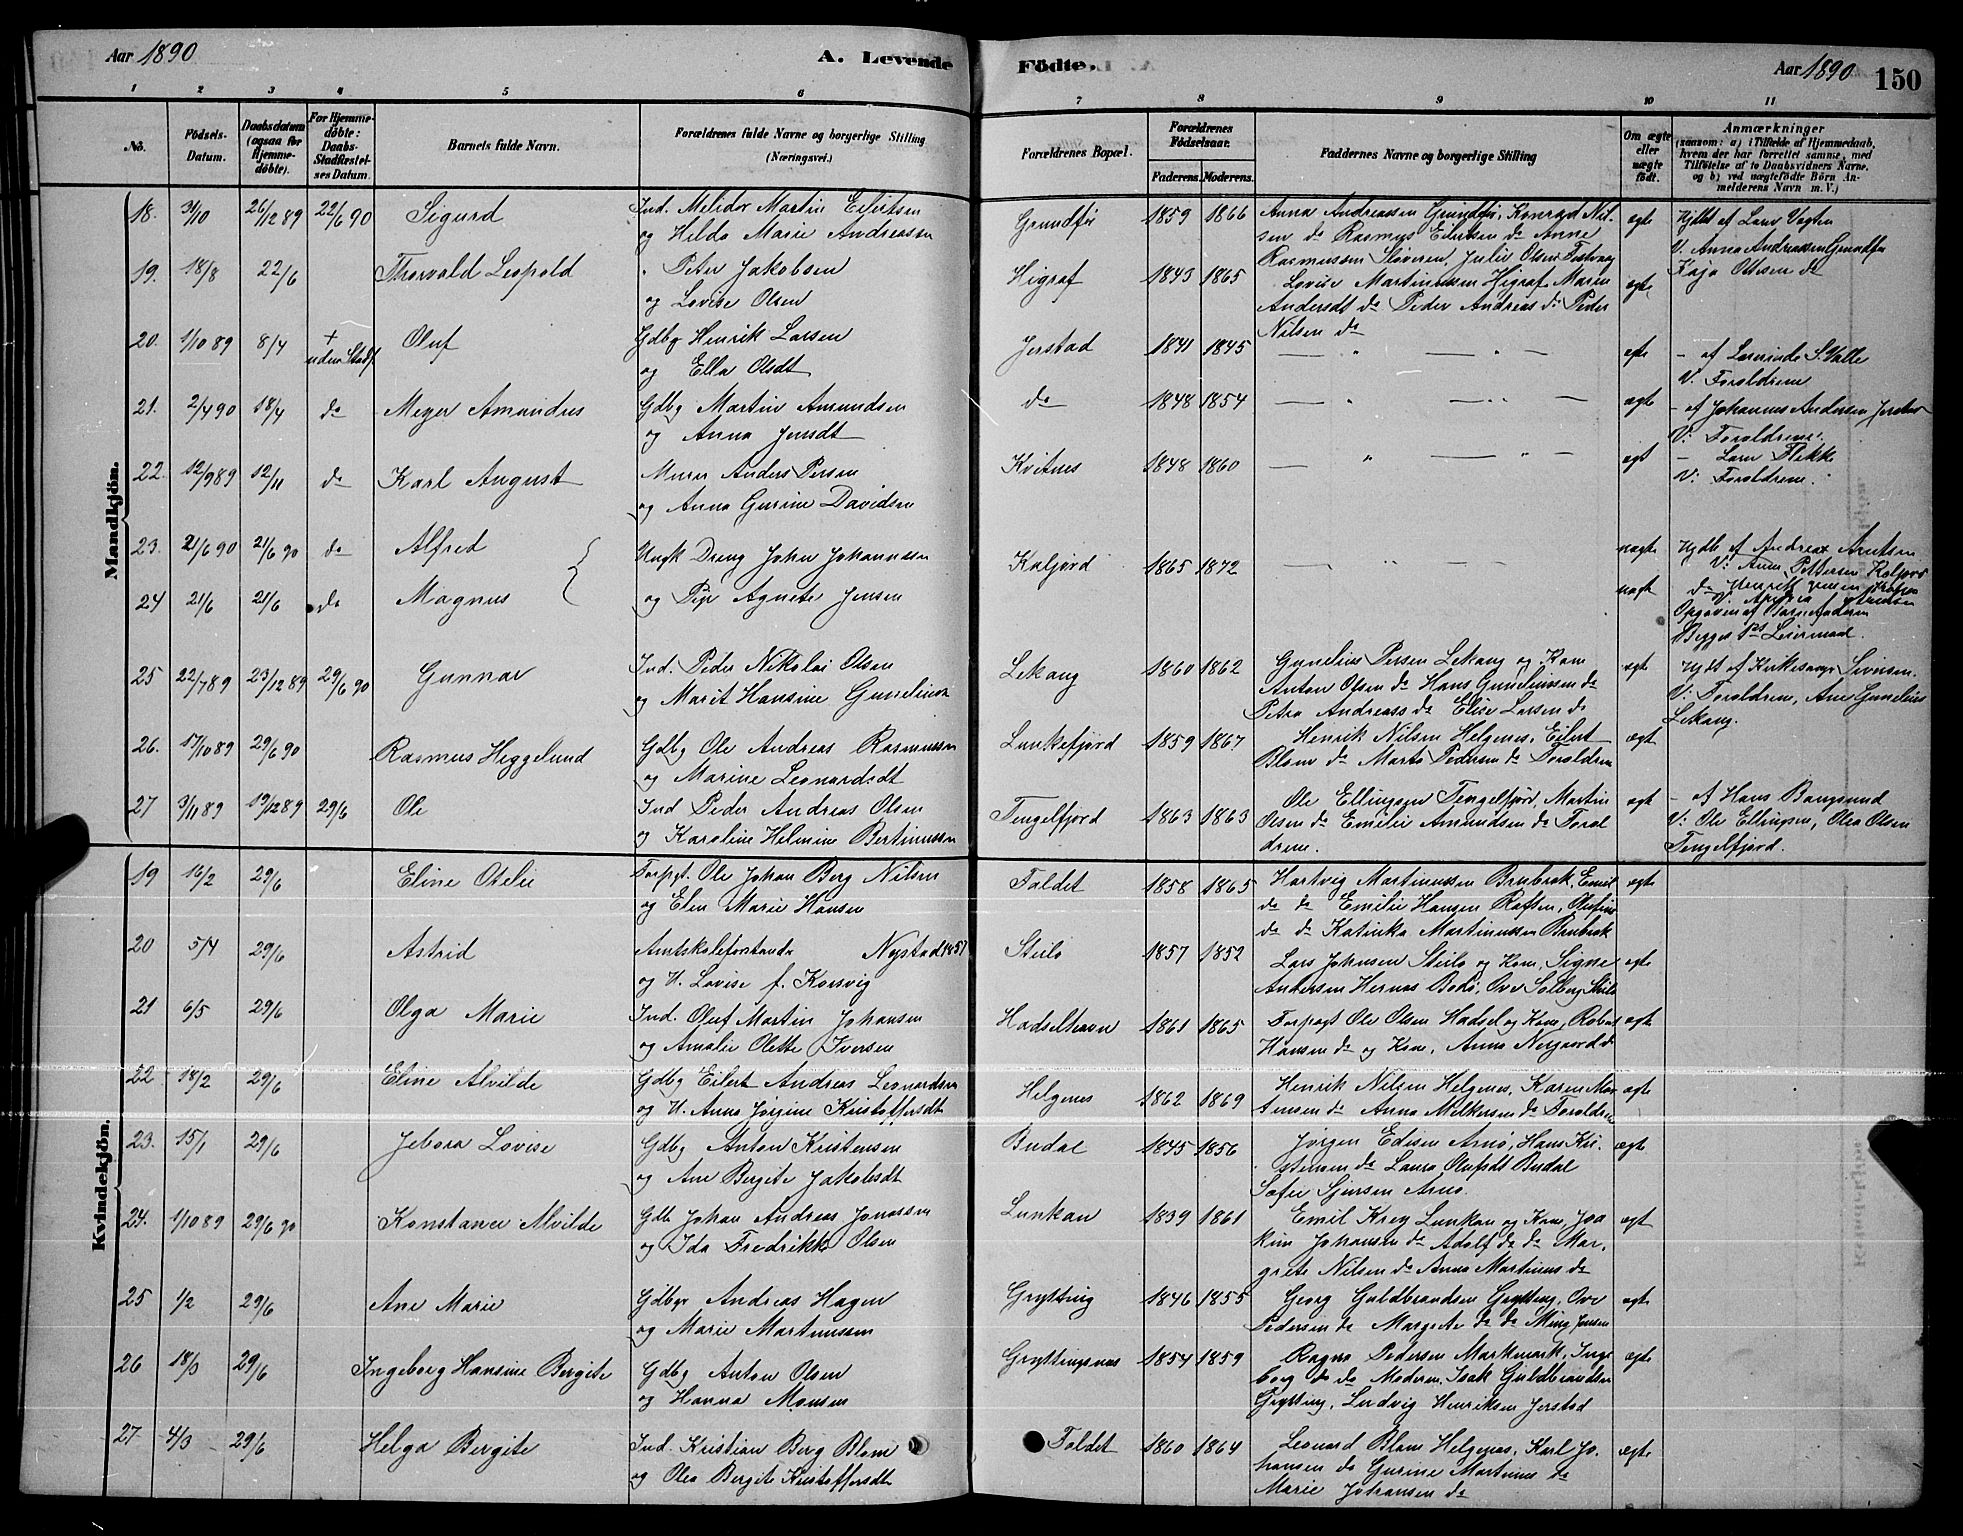 Aar 1890
A. Levende
Födte.
Aar 1890 150
1 2 3 4 5 6 7 8 9 10 11
No.
Födsels-Datum.
Daabsdatum (ogsaa for Hjemme-döbte).
For Hjemme-döbte: Daabs-Stadfæstel-ses Datum.
Barnets fulde Navn.
Forældrenes fulde Navne og borgerlige Stilling (Næringsvei.)
Forældrenes Bopæl.
Forældrenes Födselsaar.
Faderens. Moderens.
Faddernes Navne og borgerlige Stilling
Om ægte eller uægte födt.
Anmærkninger
(saasom: a) i Tilfælde af Hjemmedaab, hvem der har forrettet samme, med Tilföielse af to Daabsvidners Navne, og b) ved uægtefödte Börn An-melderens Navn m. V.)
Mandkjön.
18. 3/10 26/12 89 22/6 90 Sigurd
Ind. Melidor Martin Eilertsen
og Hilda Marie Andreassen
Grundfør 1859 1866
Anna Andreassen Grundfør, Konrad Nil-
sen do Rasmus Eilertsen do Anne
Rasmussen Julie Olsen
ægte
Hjdbt af Lars Vogten
V. Anna Andreassen Grundfør
Kaja Ottesen do
19. 18/8 22/6 Thorvald Leopold
" Peter Jakobsen
og Lovise Olsen
Higraf 1843 1865
Lovise Martinussen Higraf Maren
Andersdt do Peder Andreas do Peder
Nilsen do
ægte
20. 1/10 89 8/4 + uden Stadf Oluf
Gdbg Henrik Larsen
og Ella Olsdt
Jerstad 1841 1845
— " — " —
ægte
V. Forældrene
21. 2/4 90 18/4 do Meyer Amandus
Gdbg Martin Amundsen
og Anna Jensdt
do 1848 1854
— " — " —
ægte
- af Johannes Andersen Jerstad
V: Forældrene.
22. 12/9 89 12/11 do Karl August
Murer Anders Persen
og Anna Gurine Davidsen
Kvitnes 1848 1860
— " — " —
ægt
- Lars Flekke
V: Forældrene.
23. 21/6 90 21/6 90 do Alfred
Ungk Dreng John Johannessen
Kaljord 1865 1872
— " — —
uægte
Hjdb af Andreas Arntsen
V: Anne Pettersen Kaljord
24 21/6 21/6 do Magnus
og Pige Agnete Jensen
uægt
Opgaven af Barnefaderen
Begges 1ste Leiermaal.
25 22/7 89 23/12 89 29/6 90 Gunnar
Ind. Peder Nikolai Olsen
og Marit Hansine Guneliussen
Lekang 1860 1862
Gunelius Persen Lekang og Kone
Anton Olsen do Hans Guneliussen do
Petra Andreass do Elise Larsen do
ægte
Hjdt af Kirkesanger Sivertsen.
V: Forældrene, Ane Gunelius
Lekang.
26. 17/10 89 29/6 90 Rasmus Heggelund
Gdbg Ole Andreas Rasmussen
og Marine Leonardsdt
Lunkefjord 1859 1867
Henrik Nilsen Helgenes, Eilert
Blom do Marta Pedersen do Forældren
ægt
27 3/11 89 19/12 89 29/6 Ole
Ind Peder Andreas Olsen
og Karoline Helmine Bertinussen
Tengelfjord 1863 1863
Ole Ellingsen Tengelfjord, Martin
Olsen do Emilie Amundsen do Foræl
drene.
ægt
- af Hans Bangsund
V: Ole Ellingsen, Olea Olsen
Tengelfjord.
Kvindekjön.
19 16/2 29/6 Eline Otelie
Forpgt. Ole Johan Berg Nilsen
og Elen Marie Hansen
Faldet 1858 1865
Hartvig Martinussen Brubrek, Emil
do do Emilie Hansen Raften,
do do Katinka Martinussen Brubrek
ægte
20 5/4 29/6 Astrid
Amtskoleforstander Nystad 1857
og H. Lovise f. Korsvig
Steilo 1857 1852
Lars Johnsen Steilo og Kone, Signe
Andersen Hernes Bodø, Over Solberg Steilo
ægte
21 6/5 29/6 Olga Marie
Ind. Oluf Martin Johansen
og Amalie Olette Iversen
Hadselhavn 1861 1865
Forpagt Ole Olsen Hadsel og Kone, Robert
Hansen do og Kone, Anna Nergaard do
ægte
22 18/2 29/6 Eline Alvilde
Gdbg Eilert Andreas Leonardsen
og H. Anna Jørgine Kristoffersdt
Helgenes 1862 1869
Henrik Nilsen Helgenes, Karen Mor
tensen do Anna Melkersen do Forældren
ægte
23. 15/1 29/6 Jebora Lovise
Gdbg Anton Kristensen
og Ane Bergite Jakobsdt
Budal 1845 1856
Jørgen Edisen Arnø, Hans Kri-
stensen do Laura Olufsdt Budal
Sofie Sjursen Arnø.
ægte
24. 1/10 89 29/6 90 Konstance Alvilde
Gdb Johan Andreas Jonassen
og Ida Fredrikke Olsen
Lunkan 1839 1861
Emil Krey Lunkan og Kone, Joa
kim Johansen do Adolf do do Mar-
grete Nilsen do Anna Martinus do
ægt
25 1/2 29/6 Ane Marie
Gdbgr Andreas Hagen
og Marie Martinussen
Grytting 1846 1855
Georg Guldbrandsen Grytting, Ove
Pedersen do Margete do do Jensen
ægte
26 18/3 29/6 Ingeborg Hansine Bergite
Gdbg Anton Olsen
og Hanna Monsen
Gryttingsnes 1854 1859
Ragna Pedersen Markmark, Inge
borg do do Moderen, Isak Guldbrandsen
Grytting, Ludvig Henriksen Jerstad
ægte
27 4/3 29/6 Helga Bergite
Ind. Kristian Berg Blom
og Olea Bergite Kristoffersdt
Faldet 1860 1864
Leonard Blom Helgenes, Karl Jo-
hansen do Gurine Martinus do
Marie Johansen do
ægte